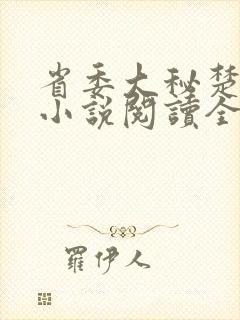 省委大秘楚
小說閱讀全
羅伊人